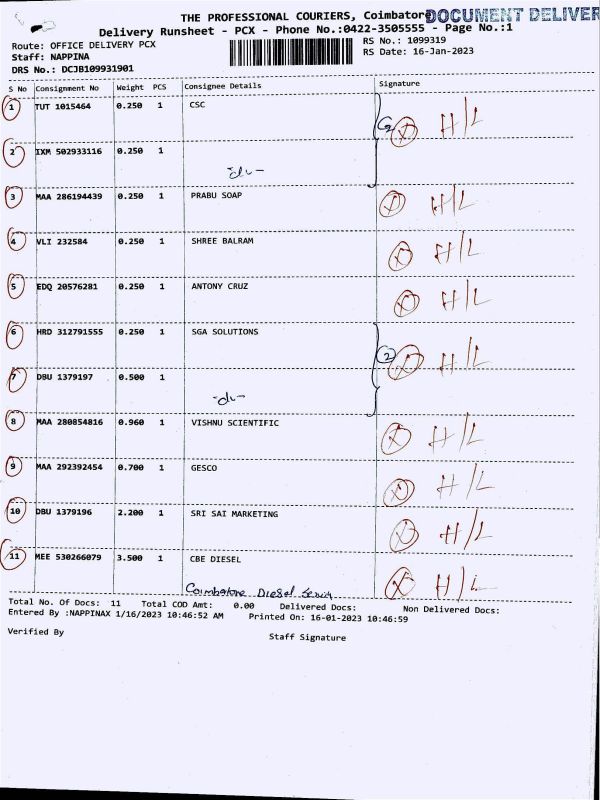 THE PROFESSIONAL COURIERS, Coimbatore
DOCUMENT DELIVER
Delivery Runsheet - PCX - Phone No.:0422-3505555 - Page No.:1
Route: OFFICE DELIVERY PCX
RS No.: 1099319
Staff: NAPPINA
RS Date: 16-Jan-2023
DRS No.: DCJB109931901
S No Consignment No Weight PCS Consignee Details Signature
1 TUT 1015464 0.250 1 CSC H/L
2 IXM 502933116 0.250 1
3 MAA 286194439 0.250 1 PRABU SOAP H/L
4 VLI 232584 0.250 1 SHREE BALRAM H/L
5 EDQ 20576281 0.250 1 ANTONY CRUZ H/L
6 HRD 312791555 0.250 1 SGA SOLUTIONS 2 H/L
7 DBU 1379197 0.500 1
8 MAA 280854816 0.960 1 VISHNU SCIENTIFIC H/L
9 MAA 292392454 0.700 1 GESCO H/L
10 DBU 1379196 2.200 1 SRI SAI MARKETING H/L
11 MEE 530266079 3.500 1 CBE DIESEL H/L
Coimbatore Diesel
Total No. Of Docs: 11 Total COD Amt: 0.00 Delivered Docs: Non Delivered Docs:
Entered By :NAPPINAX 1/16/2023 10:46:52 AM Printed On: 16-01-2023 10:46:59
Verified By
Staff Signature